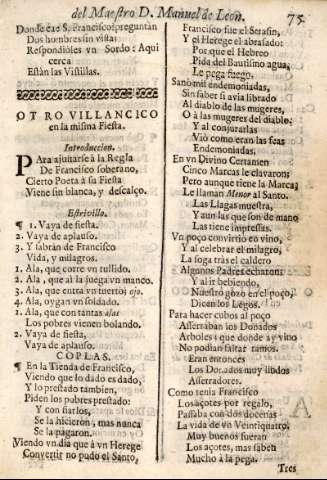 del Maestro D. Manuel de Leon. 75
Donde cae S. Francisco? preguntan
Dos hombres sin vista:
Respondióles vn Sordo: Aqui
cerca
Están las Vistillas.
OTRO VILLANCICO
en la misma Fiesta.
Introduccion.
PAra ajustarse à la Regla
De Francisco soberano,
Cierto Poeta à su Fiesta
Viene sin blanca, y descalço.
Estrivillo.
¶ 1. Vaya de fiesta.
2. Vaya de aplauso.
3. Y sabràn de Francisco
Vida, y milagros.
1. Ala, que corre vn tullido.
2. Ala, que alà la juega vn manco.
3. Ala, que entra vn tuerto; ojo.
4. Ala, oygan vn soldado.
1. Ala, que con tantas alas
Los pobres vienen bolando.
2. Vaya de fiesta,
Vaya de aplauso.
COPLAS.
¶ En la Tienda de Francisco,
Viendo que lo dado es dado,
Y lo prestado tambien,
Piden los pobres prestado:
Y con fiarlos,
Se la hicieron, mas nunca
Se la pagaron.
Viendo vn dia que à vn Herege
Convertir no pudo el Santo,
Francisco fue el Serafin,
Y el Herege el abrasado:
Por que el Herege
Pida del Bautismo agua,
Le pega fuego.
Sanò mil endemoniadas,
Sin saber si avia librado
Al diablo de las mugeres,
O à las mugeres del diablo:
Y al conjurarlas
Viò como eran las feas
Endemoniadas.
En vn Divino Certamen
Cinco Marcas le clavaron;
Pero aunque tiene la Marca,
Le llaman Menor al Santo.
Las Llagas muestra,
Y aun las que son de mano
Las tiene impressas.
Vn poço convirtiò en vino,
Y al celebrar el milagro,
La soga tras el caldero
Algunos Padres echaron:
Y al ir bebiendo,
Nuestro gozo en el poço,
Dicen los Legos.
Para hacer cubos al poço
Asserraban los Donados
Arboles; que donde ay vino
No podian faltar ramos.
Eran entonces
Los Donados muy lindos
Asserradores.
Como tenia Francisco
Los açotes por regalo,
Passaba con dos docenas
La vida de vn Veintiquatro.
Muy buenos fueran
Los açotes, mas saben
Mucho à la pega.
Tres